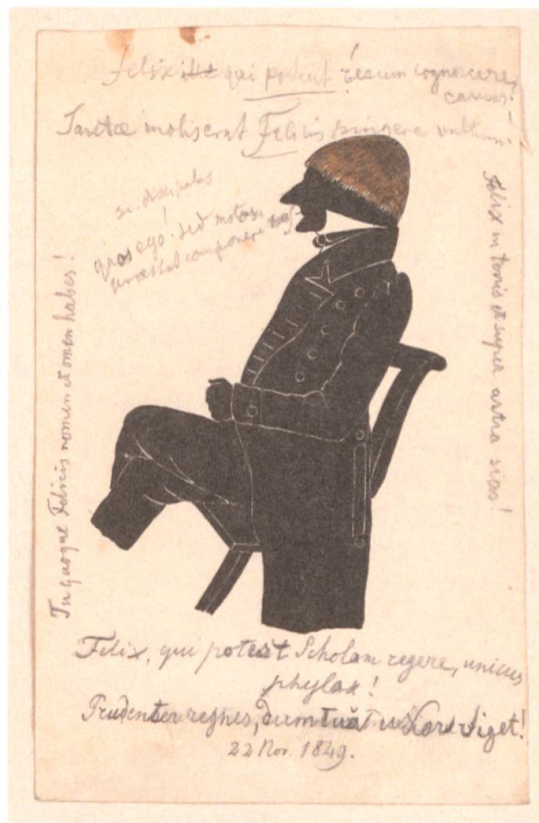 Felix ille qui potuit rerum cognoscere
causas!
Tantae molis erat Felicis pingere vultum!
sc. discipulos
quos ego! sed motos
praestat componere
Felix in tonis et super astra
Tu quoque Felicis nomen et omen habes!
Felix, qui potest Scholam regere, unicus
phylax!
Prudenter reghes, dum tua viget!
22 Nov. 1849.